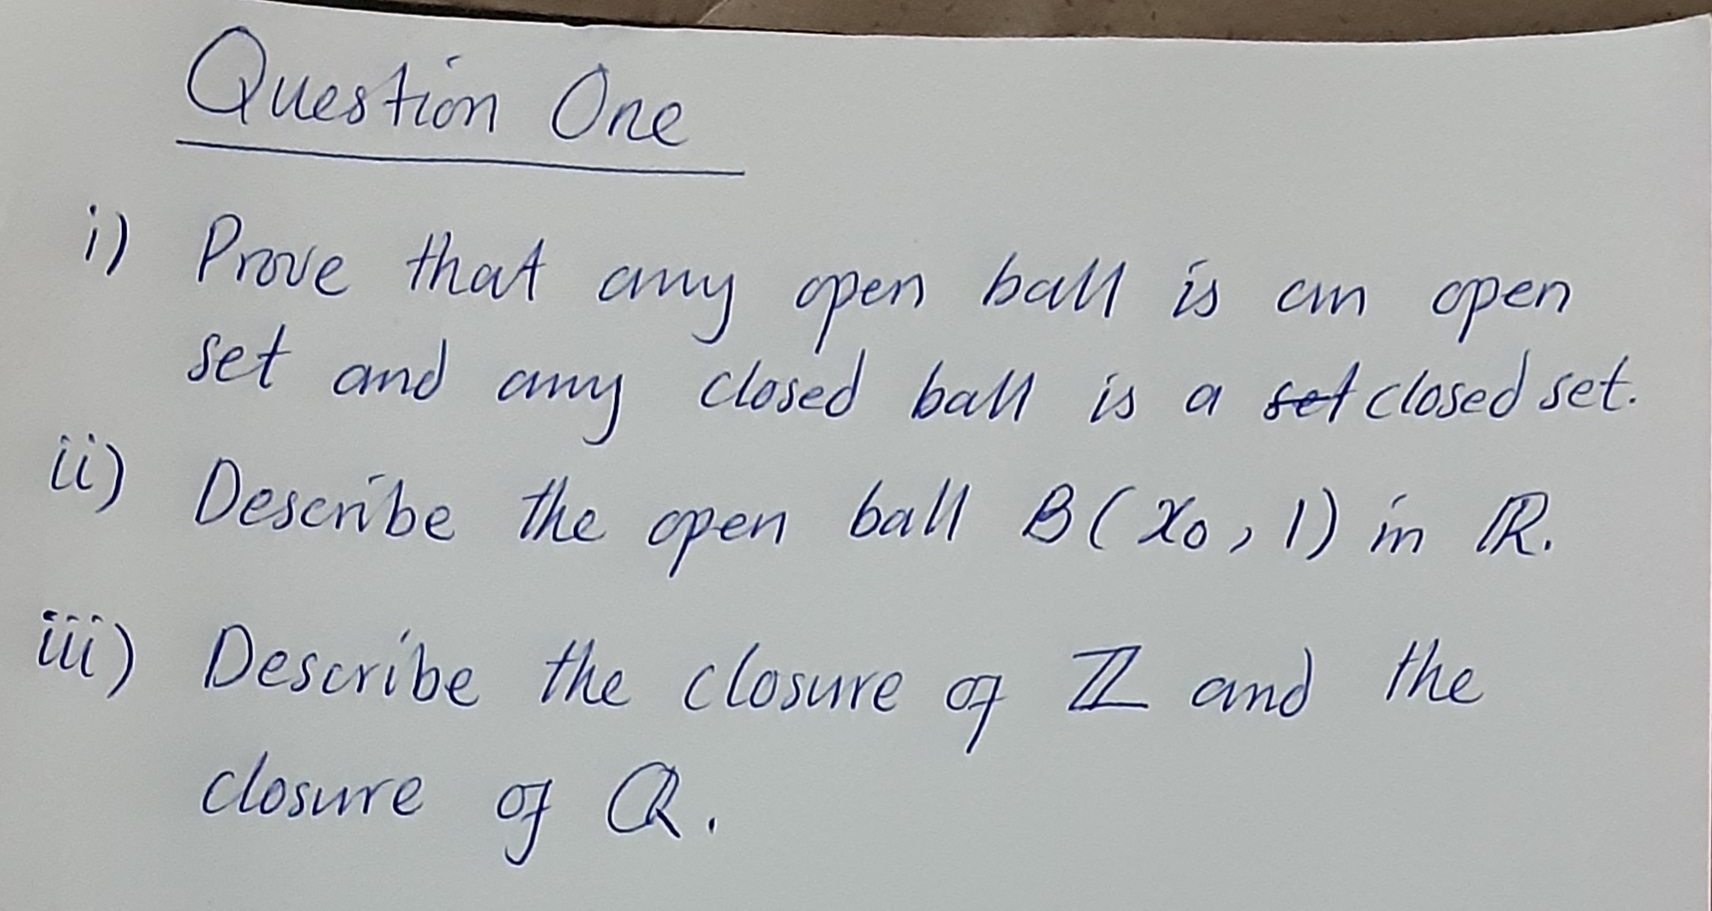 Question One
i) Prove that any open ball is an open
set and any closed ball is a set closed set.
ii) Describe the open ball B(x₀, 1) in ℝ.
iii) Describe the closure of ℤ and the
closure of ℚ.